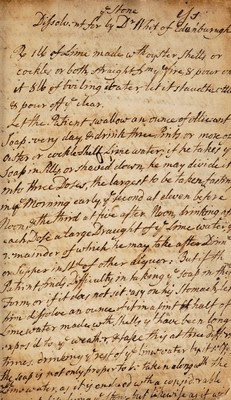 ye Stone
Dissolvent for by Dr Whit of Edenburough
R 1lb of Lime made with oyster Shells or
cockles or both straight from ye fire & pour on
it 8lb of boiling water let it stand settle
& pour off ye clear.
Let the Patient swallow an ounce of Allicant
Soap every day & drink three Pints or more of
Oyster or cockle shell Lime water, if he takes ye
Soap in Pills or shaved down he may divide it
into three Doses, the largest to be taken fasting
in ye Morning early ye second at eleven before
Noon, & the third at five after Noon, drinking after
each Dose a large Draught of ye Lime water ye
remainder of which he may take after Dinner
or Supper instead of other liquor. But if the
Patient finds difficulty in taking ye Soap in this
Form or if it does not sit easy on his Stomach let
him dissolve an ounce of it in a pint & half of
Lime water made with Shells yt have been long
exposed to ye weather, & take this at three different
times, drinking ye rest of ye lime water by itself
the soap is not only proper to be taken along with the
Lime water, as it is endued with a considerable